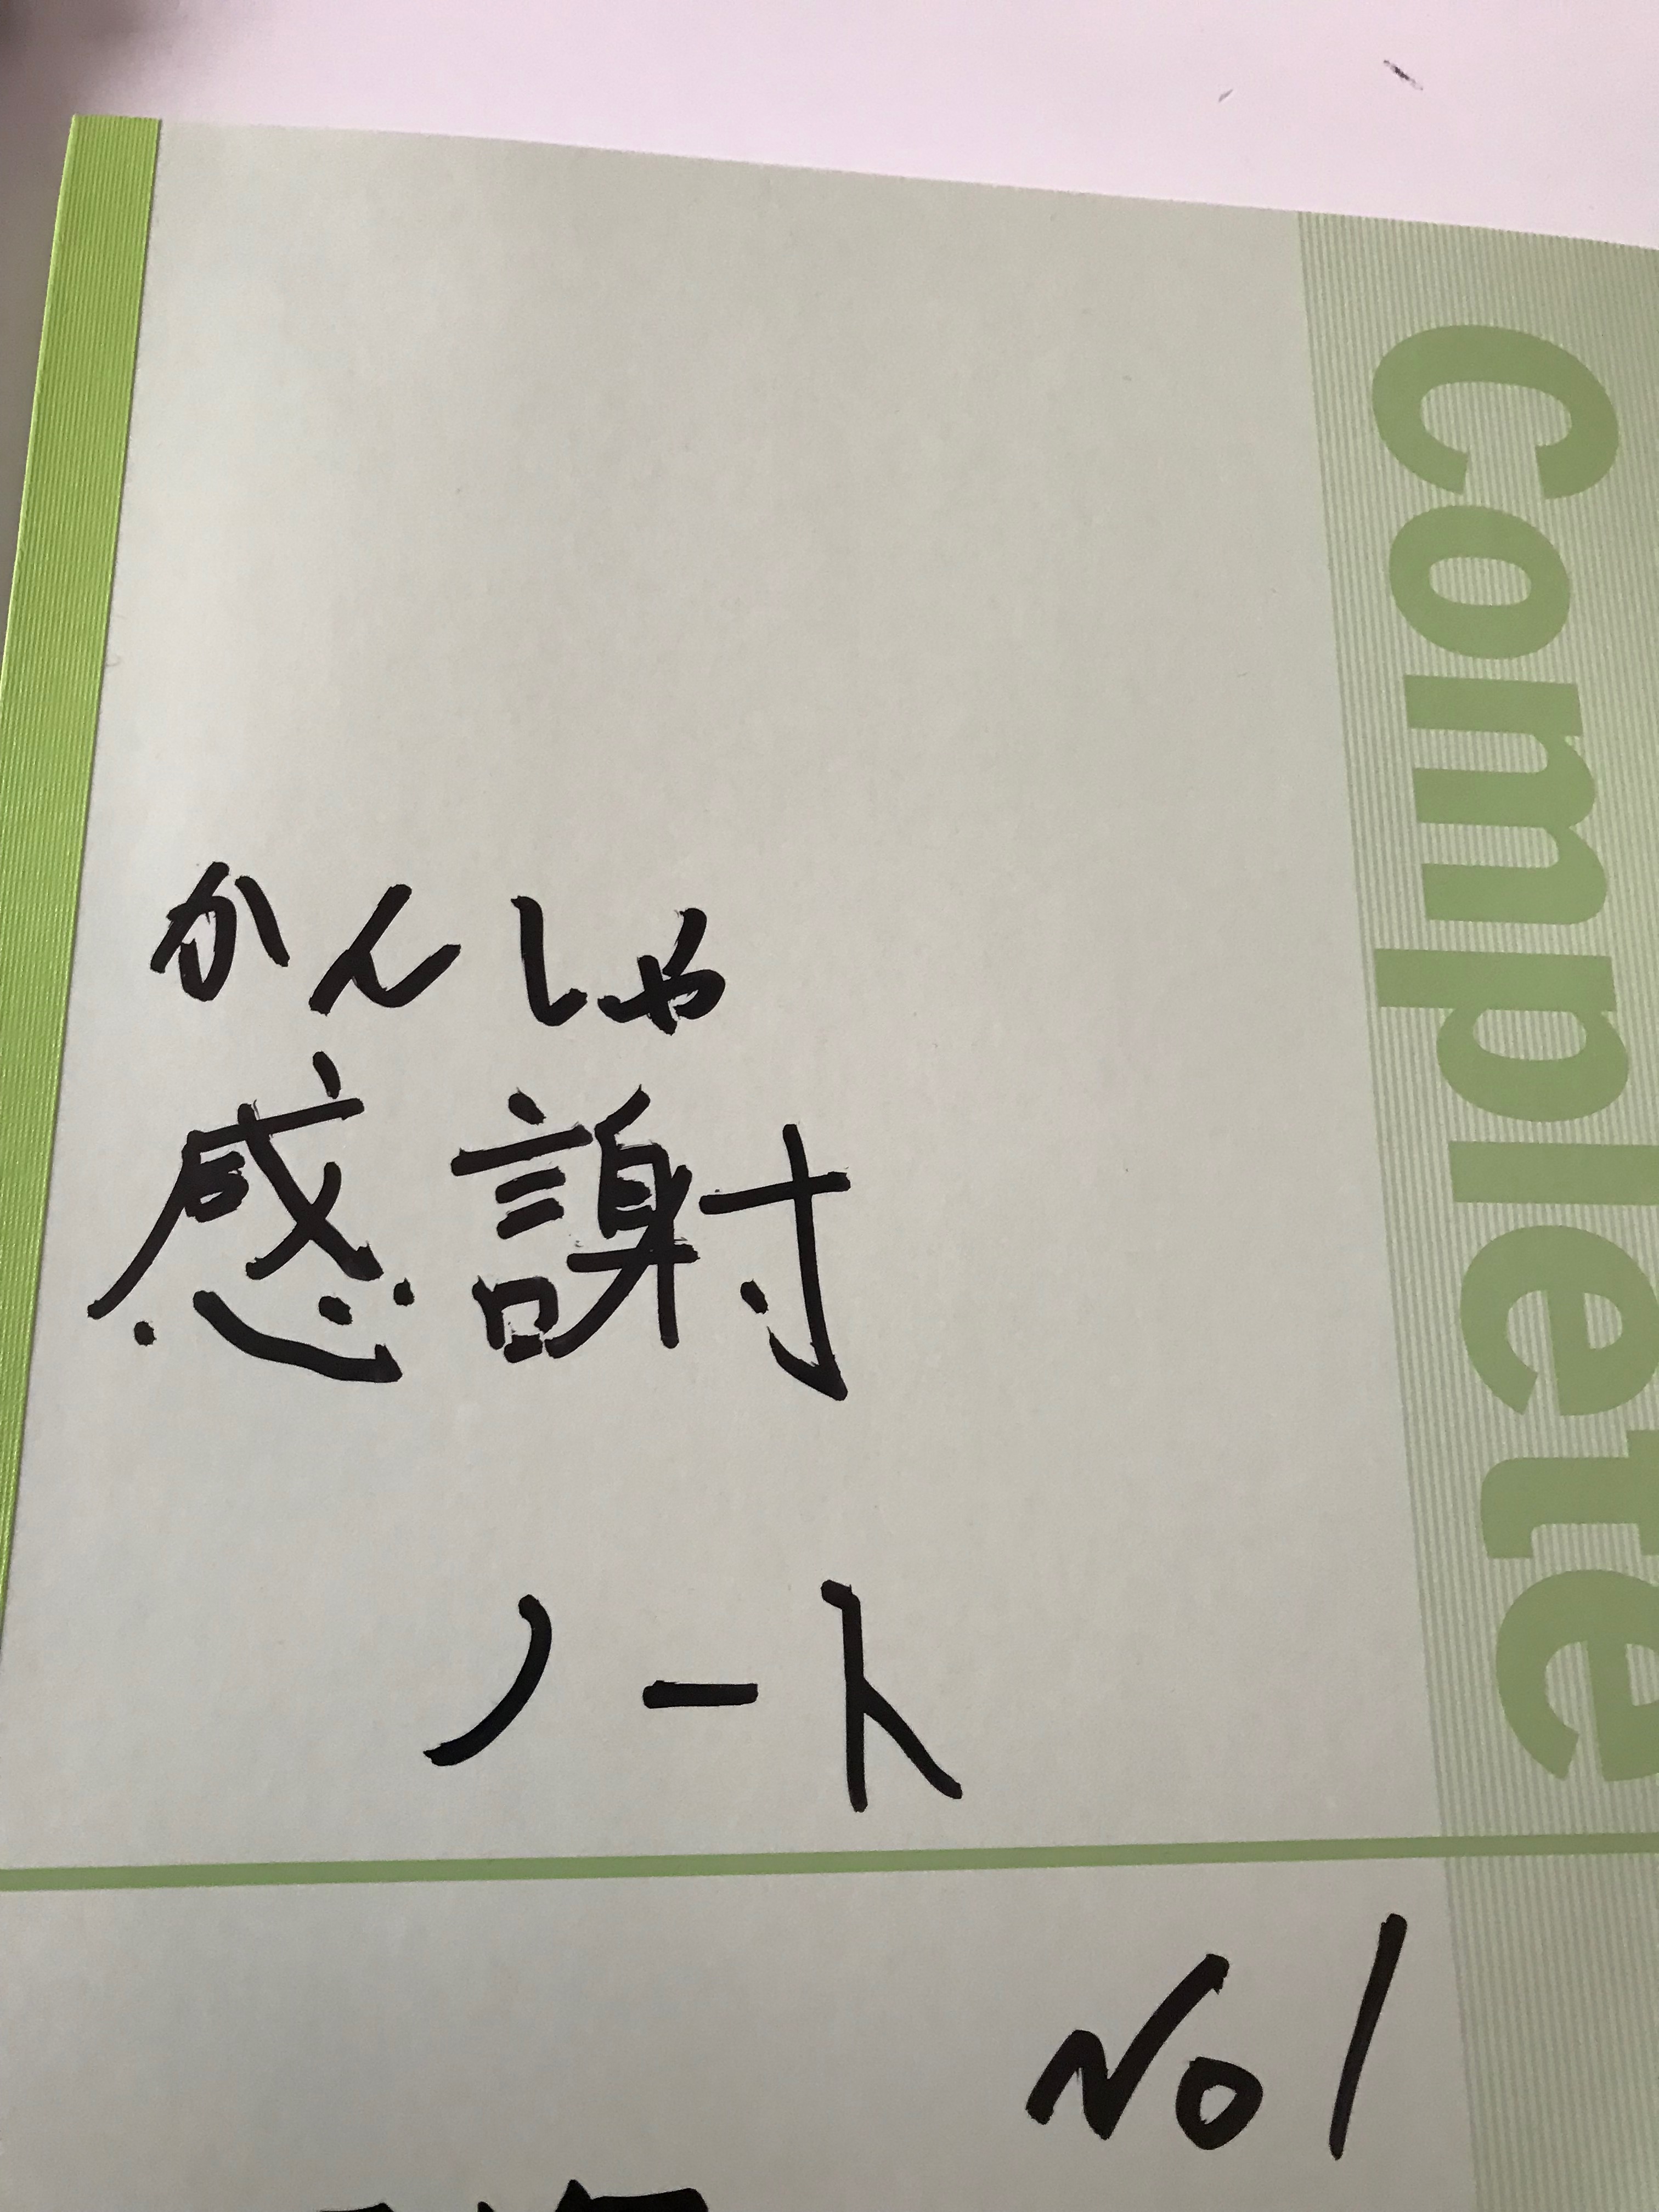 かんしゃ
感謝
ノート
No 1
Complete